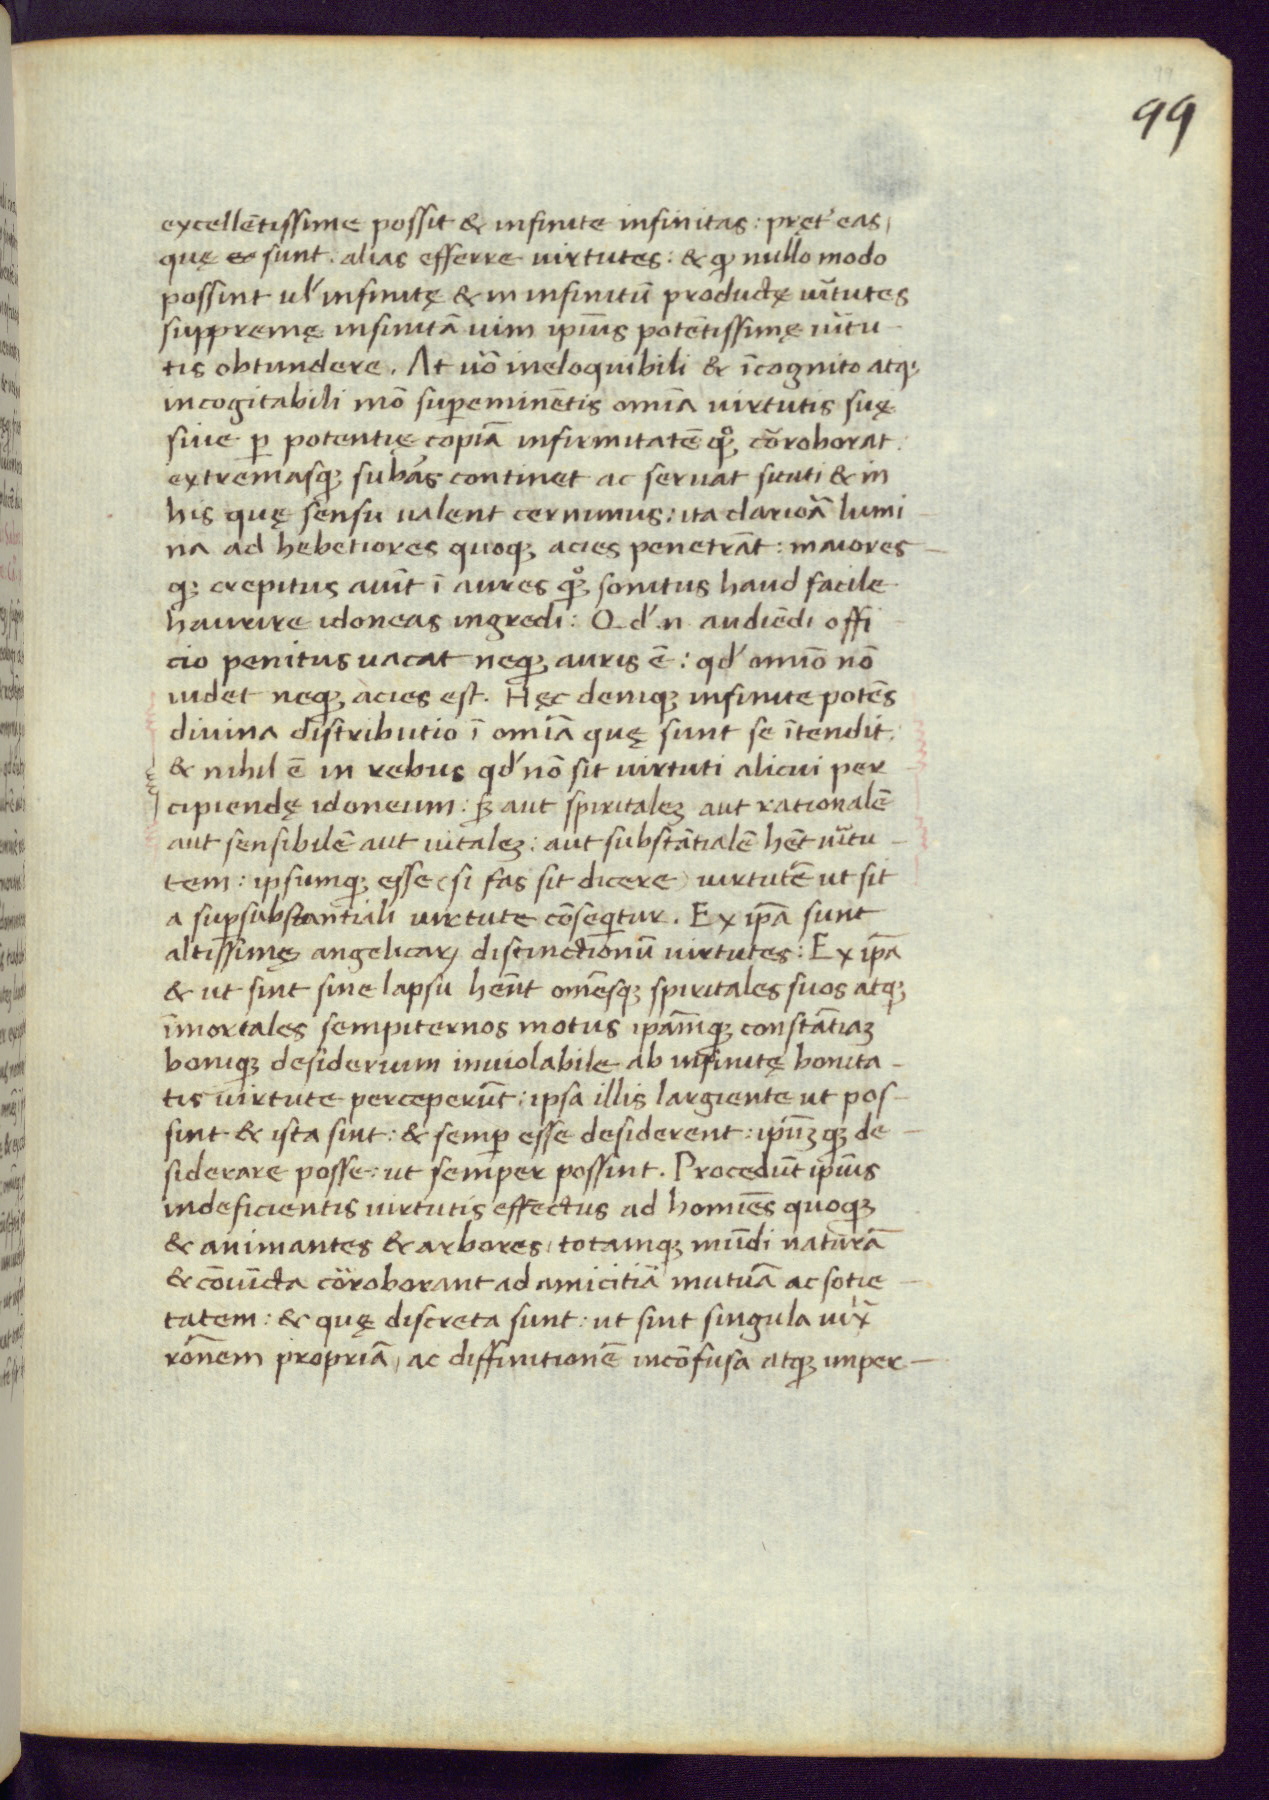 99
excellētissime possit & infinite infinitas: pręt' eas,
quę sunt. alias efferre virtutes: & qꝫ nullo modo
possint ul' infinitę & in infinitū productę uītutes
suppremę infinitā uim ipīus potētissimę uītu-
tis obtundere. At uō ineloquibili & īcognito atqꝫ
incogitabili mō supeminētis omīa virtutis suę
siue ꝑ potentię copiā infirmitatē qͦꝫ cōroborat:
extremasqꝫ subās continet ac seruat sicuti & in
his quę sensu valent cernimus: ita clarioā lumi-
na ad hebetiores quoqꝫ acies penetrāt: maiores-
qꝫ crepitus auīt ī aures qͦꝫ sonitus haud facile
haurire idoneas ingredi: Qd' .n. audiēdi offi-
cio penitus vacat neqꝫ auris ē: qd' omīo nō
uidet neqꝫ acies est. Hęc deniqꝫ infinite potēs
diuina distributio ī omīa quę sunt se ītendit:
& nihil ē in rebus qd' nō sit uirtuti alicui per-
cipiendę idoneum: sꝫ aut spiritaleꝫ aut rationalē
aut sensibilē aut vitaleꝫ: aut substātialē hēt uītu-
tem: ipsumqꝫ esse (si fas sit dicere) uirtutē ut sit
a supsubstantiali virtute cōseqtur. Ex ipā sunt
altissimę angelicaꝝ distinctionū uirtutes: Ex ipā
& ut sint sine lapsu hēnt omēsqꝫ spiritales suos atqꝫ
īmortales sempiternos motus ipāmqꝫ constātiaꝫ
boniqꝫ desiderium inuiolabile ab infinitę bonita-
tis uirtute perceperūt: ipsa illis largiente ut pos-
sint & ista sint: & semꝑ esse desiderent: ipūꝫqꝫ de-
siderare posse: ut semper possint. Procedūt ipīus
indeficientis uirtutis effectus ad homīes quoqꝫ
& animantes & arbores, totamqꝫ mūdi naturā
& cōuīcta cōroborant ad amicitiā mutuā ac sotie-
tatem: & quę discreta sunt: ut sint singula iuxͭ
rōnem propriā, ac diffinitionē incōfusa atqꝫ imper-